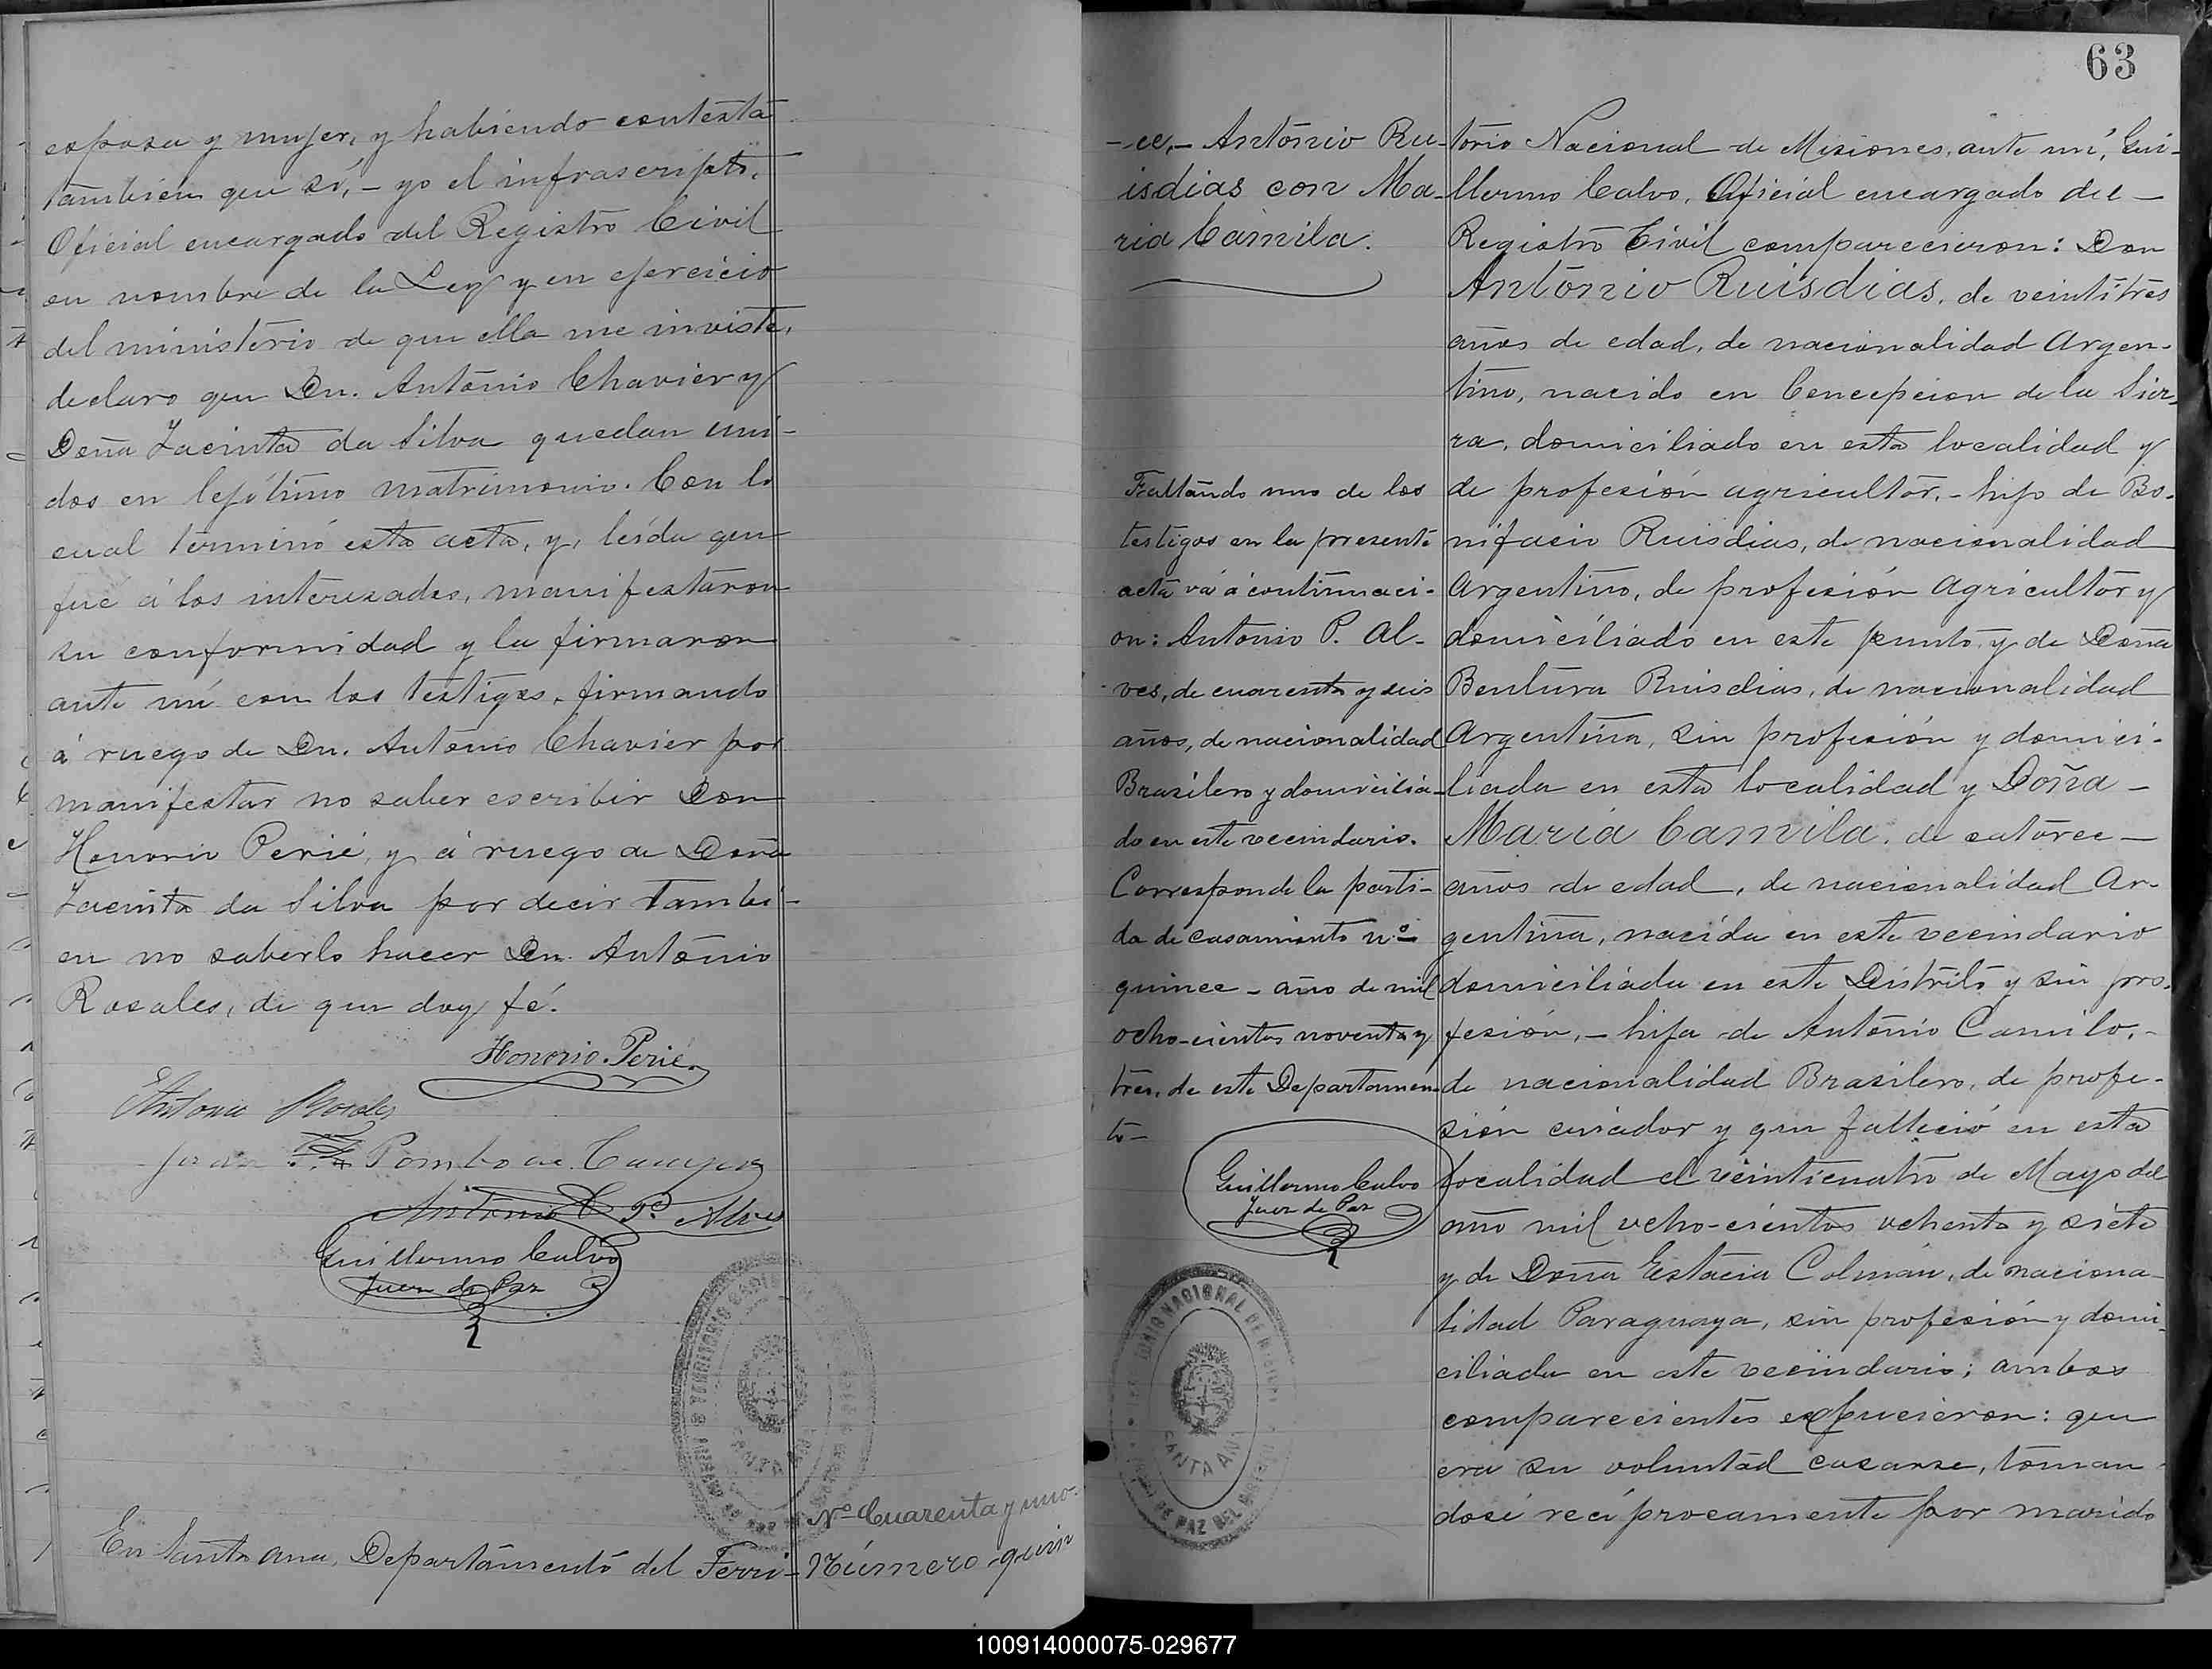 esposa y mujer, y habiendo contesta
tambien que sí, - yo el infrascripto,
Oficial encargado del Registro Civil
en nombre de la Ley y en ejercicio
del ministerio de que ella me inviste,
declaro que Dn. Antonio Chavier y
Doña Jacinta da Silva quedan uni-
dos en lejítimo matrimonio. Con lo
cual terminó esta acta, y, leída que
fué á los interesados, manifestaron
su conformidad y la firmaron
ante mí con los testigos, firmando
á ruego de Dn. Antonio Chavier por
manifestar no saber escribir Don
Honorio Perié, y á ruego de Doña
Jacinta da Silva por decir tambi-
en no saberlo hacer Dn. Antonio
Rosales, de que doy fé.
Honorio Perié
Antonio Rosales
Pombo de Campos
Antonio P. Alves
Guillermo Calvo
Juez de Paz
Nº Cuarenta y uno.
En Santa Ana, Departamento del Terri-
Número quin
63
-ce,- Antonio Ru-
isdias con Ma-
ria Camila.
Faltando uno de los
testigos en la presente
acta vá á continuaci-
on: Antonio P. Al-
ves, de cuarenta y seis
años, de nacionalidad
Brasilero y domicilia-
do en este vecindario.
Corresponde la parti-
da de casamiento nº
quince - año de mil
ocho-cientos noventa y
tres, de este Departamen-
to-
Guillermo Calvo
Juez de Paz
TORIO NACIONAL DE MISIONES
SANTA ANA
DE PAZ DEL
torio Nacional de Misiones, ante mí, Gui-
llermo Calvo, Oficial encargado del -
Registro Civil comparecieron: Don
Antonio Ruisdias, de veintitres
años de edad, de nacionalidad Argen-
tino, nacido en Concepcion de la Sier-
ra, domiciliado en esta localidad y
de profesión agricultor, - hijo de Bo-
nifacio Ruisdias, de nacionalidad
Argentino, de profesión Agricultor y
domiciliado en este punto y de Doña
Bentura Ruisdias, de nacionalidad
Argentina, sin profesión y domici-
liada en esta localidad y Doña -
Maria Camila, de catorce -
años de edad, de nacionalidad Ar-
gentina, nacida en este vecindario
domiciliada en este Distrito y sin pro-
fesión, - hija de Antonio Camilo, -
de nacionalidad Brasilero, de profe-
sión criador y que falleció en esta
localidad el veinticuatro de Mayo del
año mil ocho-cientos ochenta y siete
y de Doña Estacia Colman, de naciona-
lidad Paraguaya, sin profesión y domi-
ciliada en este vecindario; ambos
comparecientes expucieron: que
era su voluntad casarse, toman-
dose recíprocamente por marido
100914000075-029677